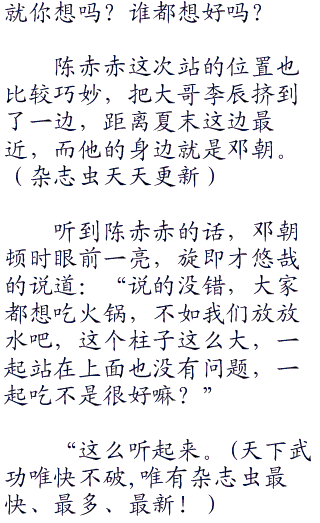 就你想吗？谁都想好吗？
陈赤赤这次站的位置也
比较巧妙，把大哥李辰挤到
了一边，距离夏末这边最
近，而他的身边就是邓朝。
（杂志虫天天更新）
听到陈赤赤的话，邓朝
顿时眼前一亮，旋即才悠哉
的说道：“说的没错，大家
都想吃火锅，不如我们放放
水吧，这个柱子这么大，一
起站在上面也没有问题，一
起吃不是很好嘛？”
“这么听起来。(天下武
功唯快不破,唯有杂志虫最
快、最多、最新！）